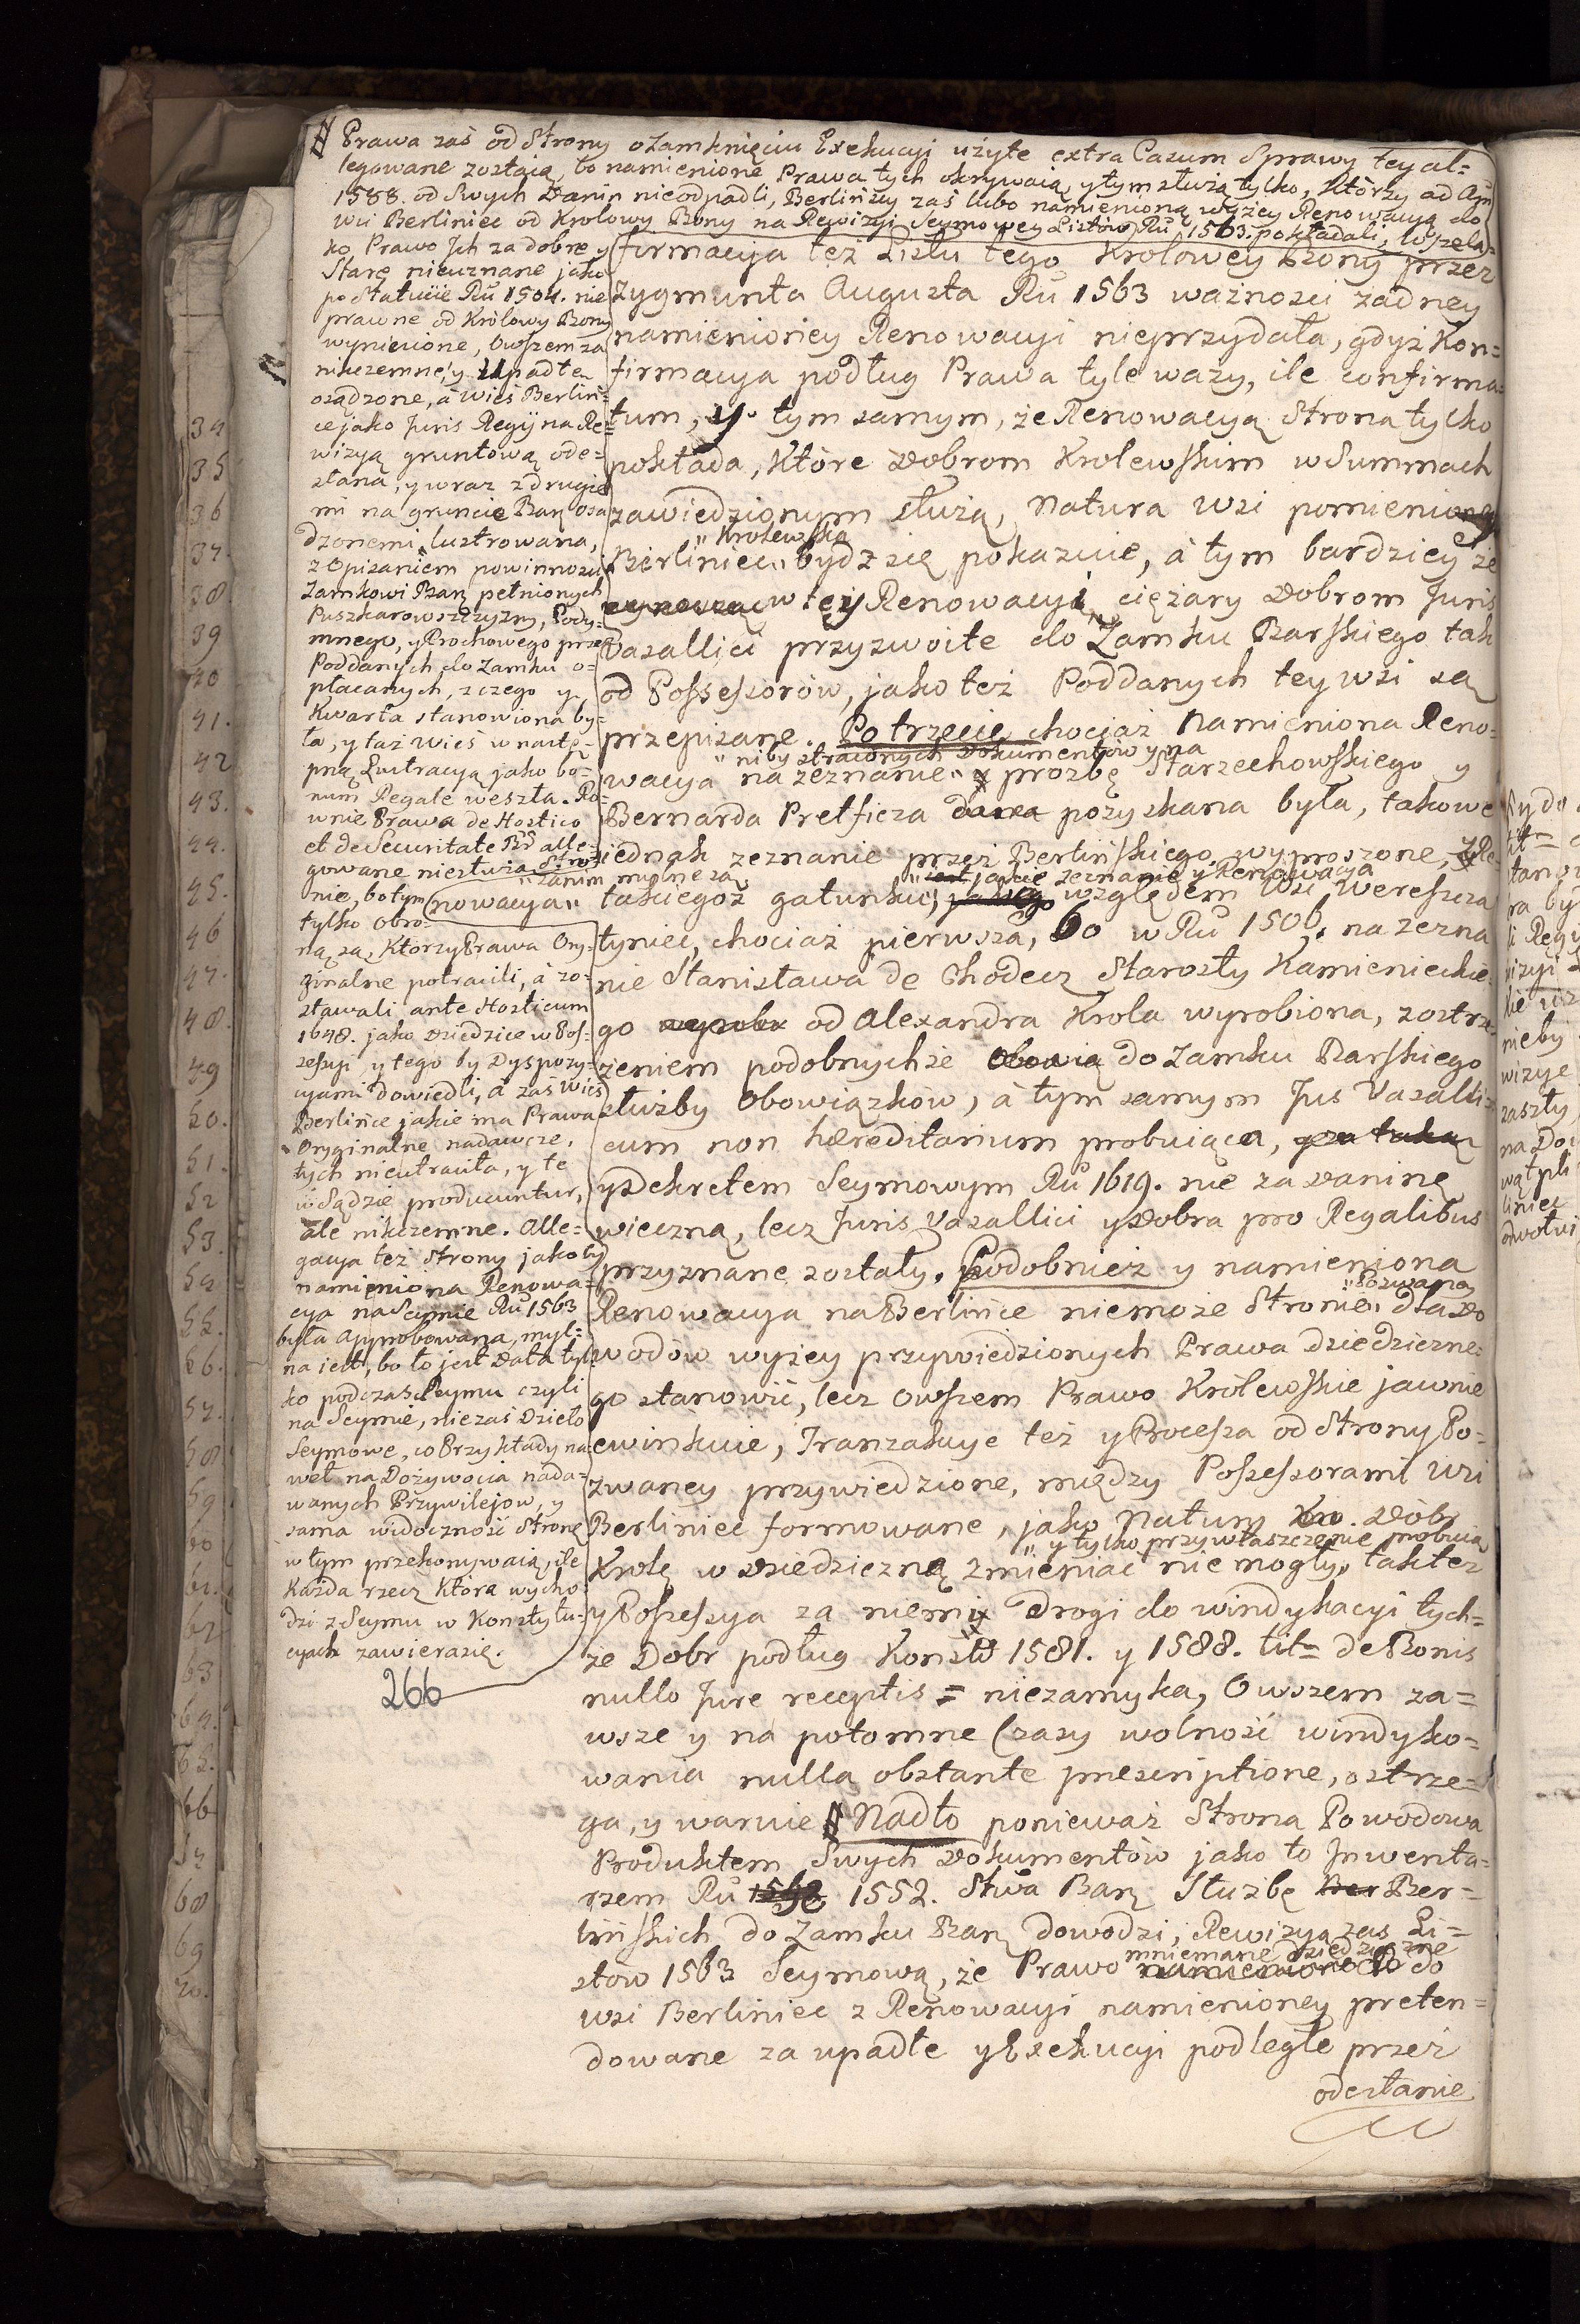 Prawa zaś od Strony o Zamknięciu Exekucyi użyte extra Casum Sprawy tey al=
legowane zostaią, bo namienione Prawa tych okrywaią, y tym służą tylko, Którzy ad Añ
1588. od Swych Danin nieodpadli, Berlińscy zaś lubo namienioną wyżey Renowacyą do
wsi Berliniec od Krolowy Bony na Rewizyi Seymowey Listow Ru 1563. pokładali, wszela=
ko Prawo Jch za dobre y
Stare nieuznane jako
po Statucie Ru 1504. nie
prawne od Królowy Bony
wyniesione, Owszem za
nikczemne, y Upadłe
osądzone, á Wieś Berlin=
ce jako Juris Regij na Re=
wizyą gruntową ode=
słana, y wraz z drugie
mi na gruncie Bar osa
dzonemi lustrowana,
z Opisaniem powinności
Zamkowi Bar pełnionych
Puszkarowszczyzny, Pody=
mnego, y Prochowego przez
Poddanych do Zamku o=
płacanych, z czego y
Kwarta stanowiona by=
ła, y taż Wieś w nastę=
pną Lustracyą jako bo=
num Regale weszła. Ro=
wnie Prawa de Hostico
et de Securitate Bd alle=
gowane niesłużą Stro=
nie, bo tym
tylko obro=
ną są, Którzy Prawa Ory=
ginalne potracili, á zo=
stawali ante Hosticum
1648. jako Dziedzice w Pos=
sessyi, y tego by Dyspozy=
cyami dowiedli, á zaś Wieś
Berlińce jakie ma Prawa
Oryginalne nadawcze,
tych nieutraciła, y te
w Sądzie producuntur,
ale nikczemne. Alle=
gacya też Strony jakoby
namieniona Renowa=
cya na Seymie Ru 1563
była approbowana, myl=
na iest, bo to jest Data tyl=
ko podczas Seymu czyli
na Seymie, niezaś Dzieło
Seymowe, co Przykłady na
wet na Dożywocia nada=
wanych Przywilejow, y
sama widoczność Stronę
w tym przekonywaią, ile
Każda rzecz Która wycho
dzi z Seymu w Konstytu=
cyach zawierasię.
266
firmacyja też Listu tego Krolowey Bony przez
Zygmunta Augusta Ru 1563 ważności żadney
namienioney Renowacyi nieprzydała, gdyż Kon=
firmacya podług Prawa tyle waży, ile confirma=
tum, y tym samym, że Renowacyą Strona tylko
pokłada, Które Dobrom Krolewskim w Summach
zawiedzionym służą, Natura wsi pomienioney
" Krolewska
Berliniec " bydz się pokazuie, á tym bardziey że
w tey Renowacyi, ciężary Dobrom Juris
Vasallici przyzwoite do Zamku Barskiego tak
od Possessorów, jako też Poddanych tey wsi są
przepisane. Po trzecie chociaż Namieniona Reno=
" niby straconych Dokumentów y na
wacya na zeznanie " prozbę Starzechowskiego y
Bernarda Pretficza dana pozyskana była, takowe
iednak zeznanie przez Berlińskiego wyproszone, y Re=
" zanim mylne są " jakie zeznanie y Renowacya
nowacya " takiegoż gatunku, względem Wsi Wereszcza
tyniec, chociaż pierwsza, bo w Ru 1506. na zezna
nie Stanisława de Chodecz Starosty Kamienieckie=
go od Alexandra Krola wyrobiona, z ostrze=
żeniem podobnychże do Zamku Barskiego
służby Obowiązków, á tym samym Jus Vasalli=
cum non hæreditarium probuiąca,
y Dekretem Seymowym Ru 1619. nie za Daninę
wieczną, lecz Juris Vasallici y Dobra pro Regalibus
przyznane zostały. Podobnież y namieniona
" Pozwaney
Renowacya na Berlińce niemoże Stronie " dla Do
wodów wyżey przywiedzionych Prawa dziedziczne=
go stanowić, lecz Owszem Prawo Królewskie jawnie
ewinkuie, Tranzakcye też y Processa od Strony Po=
zwaney przywiedzione, między Possessorami wsi
Berliniec formowane, jako Natury Dobr
" y tylko przywłaszczenie probuią
Krolę w Dziedziczną zmieniać nie mogły " także
y Possessya za niemi Drogi do windykacyi tych=
że Dobr podług Konstt 1581. y 1588. tit= de Bonis
nullo Jure receptis = niezamyka, Owszem za=
wsze y na potomne czasy wolność windyko=
wania nulla obstante præscriptione, ostrze=
ga, y waruie Nadto ponieważ Strona Powodowa
Produktem Swych Dokumentów jako to Jnwenta=
rzem Ru 1552. Stwa Bar Służbę Ber=
lińskich do Zamku Bar dowodzi, Rewizyą zaś Li=
mniemane dziedziczne
stów 1563 Seymową, że Prawo do
wsi Berliniec z Renowacyi namienioney preten=
dowane za upadłe y Exekucyi podległe przez
odesłanie
34
35
36
37.
38.
39
40
41.
42
43.
44.
45.
46
47.
48.
49
50.
51.
52
53.
54.
55.
56.
57.
58.
59.
60
61.
62
63
64.
65.
66
67
68
69
70.